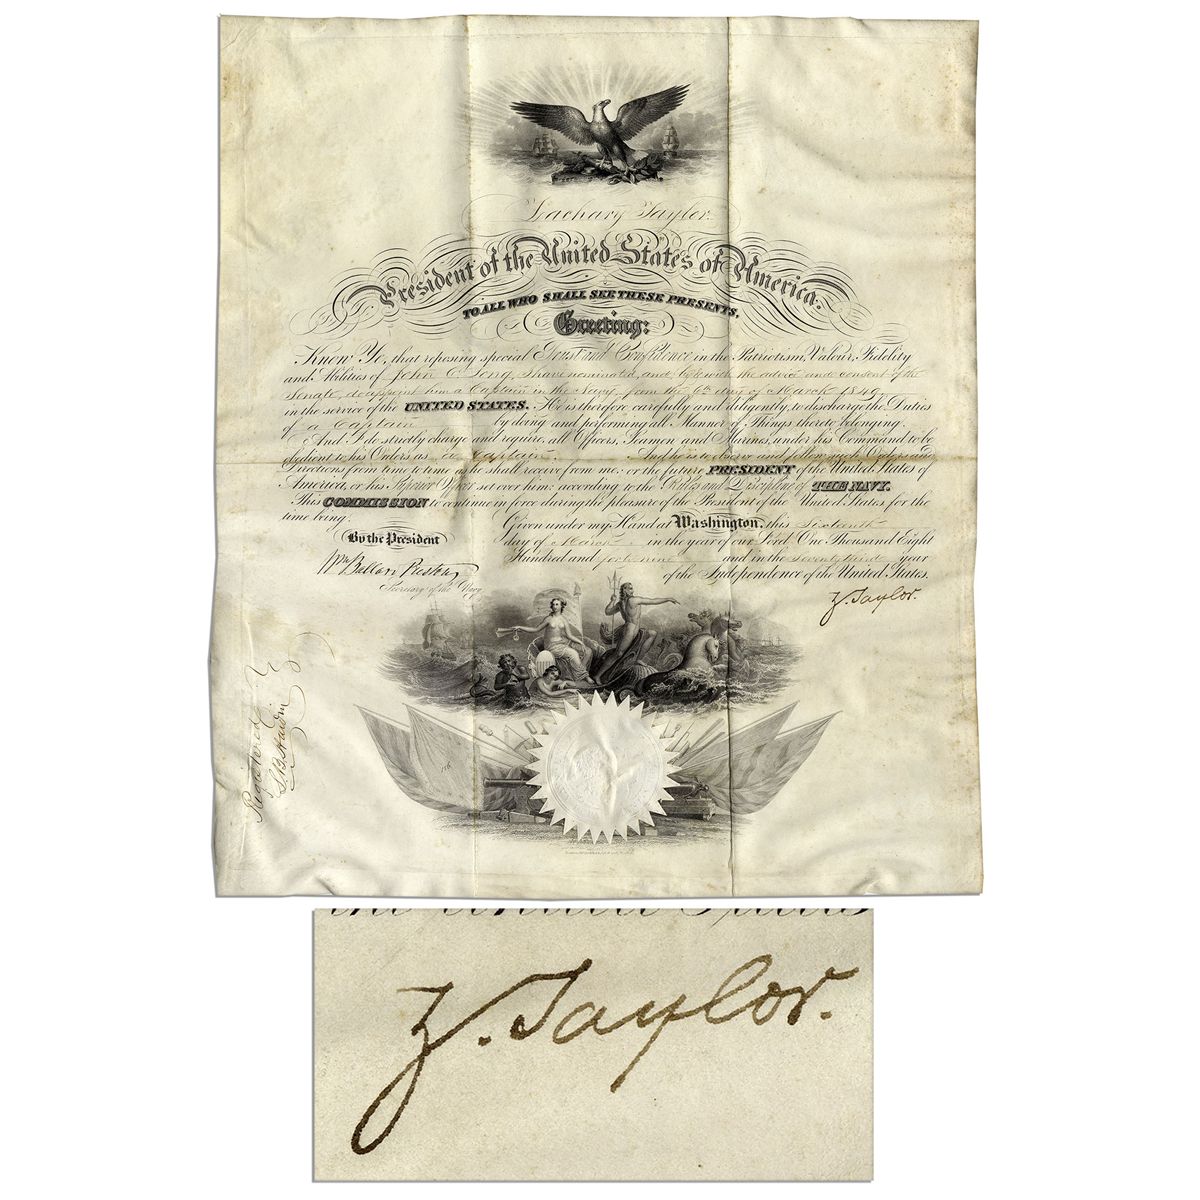 Zachary Taylor.
President of the United States of America.
TO ALL WHO SHALL SEE THESE PRESENTS,
Greeting:
Know Ye, that reposing special Trust and Confidence in the Patriotism, Valour, Fidelity
and Abilities of John C. Long, I have nominated, and by with the advice and consent of the
Senate, do appoint him a Captain in the Navy, from the 6th day of March 1849
in the service of the UNITED STATES. He is therefore carefully and diligently, to discharge the Duties
of a Captain by doing and performing all Manner of Things thereto belonging.
And I do strictly charge and require, all Officers, Seamen and Marines, under his Command to be
obedient to his Orders as a Captain And he is to observe and follow such Orders and
Directions from time to time as he shall receive from me; or the future PRESIDENT of the United States of
America, or his Superior Officer set over him; according to the Rules and Discipline of THE NAVY.
This COMMISSION to continue in force during the pleasure of the President of the United States for the
time being.
Given under my Hand at Washington, this Sixteenth
day of March in the year of our Lord One Thousand Eight
Hundred and forty nine and in the Seventy third year
of the Independence of the United States.
By the President
Wm Ballard Preston
Secretary of the Navy
Z. Taylor.
Registered
the United States
Z. Taylor.